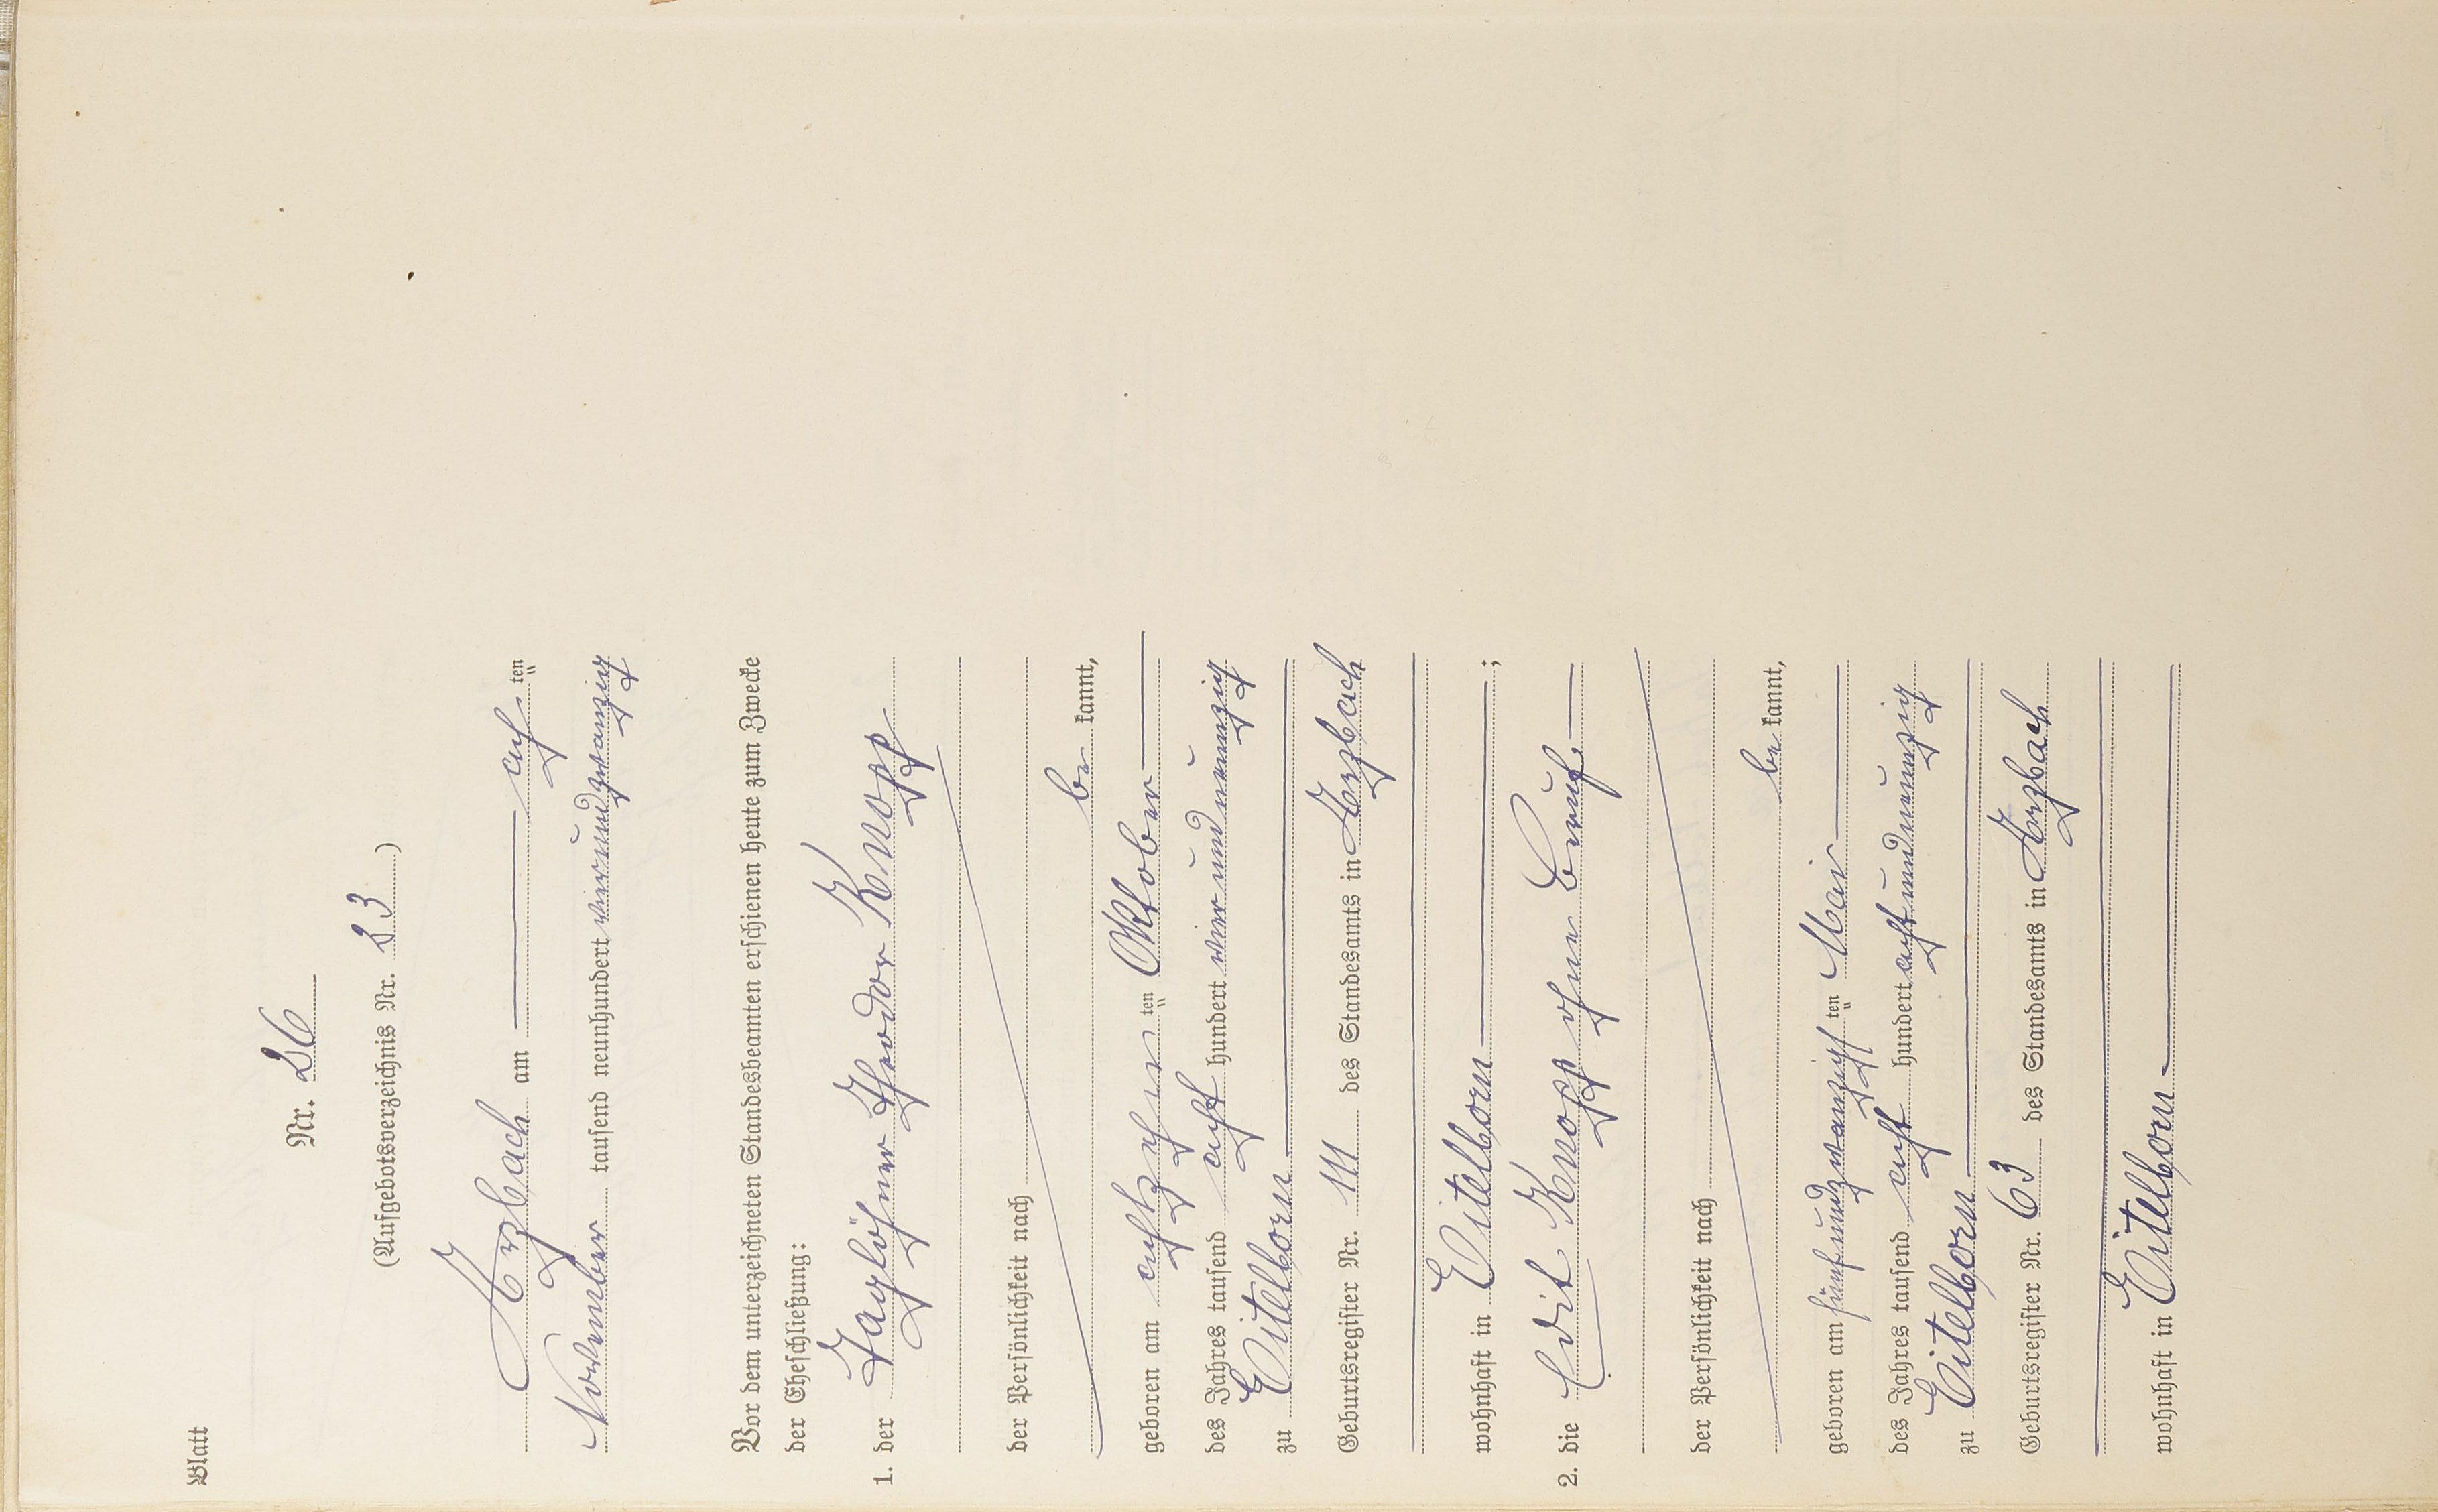 Blatt
Nr. 26
(Aufgebotsverzeichnis Nr. 23)
Arzbach am ach ten
November tausend neunhundert vierundzwanzig
Vor dem unterzeichneten Standesbeamten erschienen heute zum Zwecke
der Eheschließung:
1. der Taglöhner Theodor Knopp
der Persönlichkeit nach
be kannt,
geboren am achtzehn ten Oktober
des Jahres tausend acht hundert vierundneunzig
zu Eitelborn
Geburtsregister Nr. 111 des Standesamts in Arzbach
wohnhaft in Eitelborn ;
2. die Edit Knopp ohne Beruf
der Persönlichkeit nach
be kannt,
geboren am fünfundzwanzigs ten Mai
des Jahres tausend acht hundert achtundneunzig
zu Eitelborn
Geburtsregister Nr. 63 des Standesamts in Arzbach
wohnhaft in Eitelborn